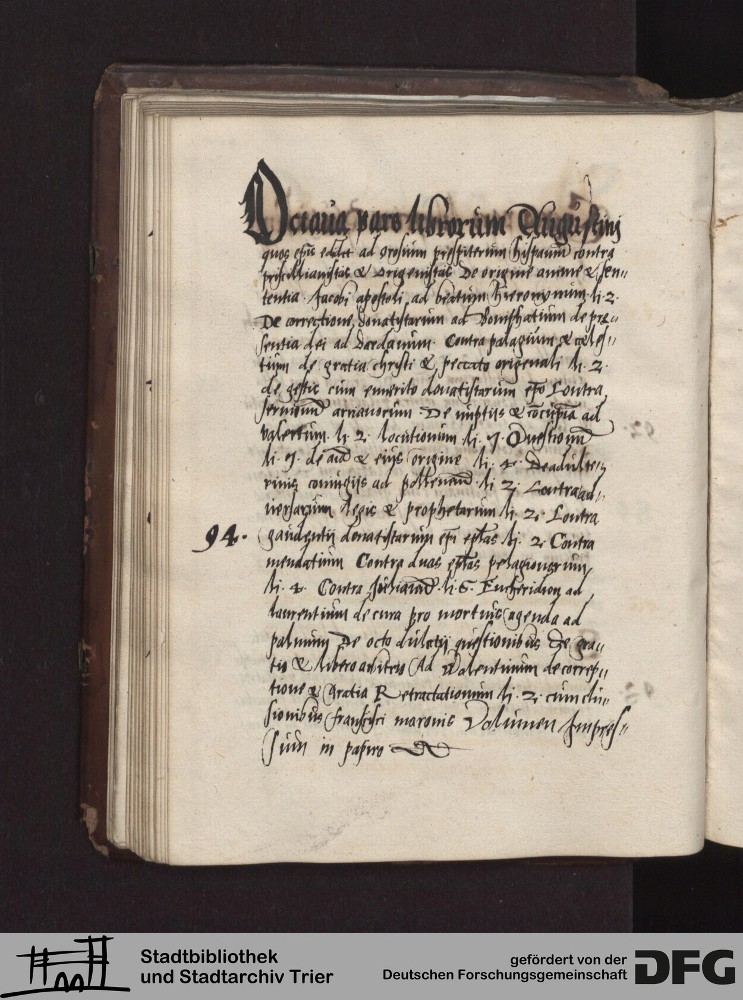 Octaua pars librorum Augustini
quos eps̄ edidit ad orosium prespiterum hispanum contra
priscillianistas & origenistas De origine anime & sen„
tentia Jacobi apostoli ad beatum Hieronymum li. 2.
De correctione donatistarum ad Bonifhatium de pre„
sentia dei ad dardanum. Contra palagium & celes„
tium de gratia christi & peccato origenali li. 2.
de gestis cum emerito donatistarum epō Contra
sermonem arrianorum De nuptijs & cōcupīa ad
valerium li. 2. locutionum li. 7. Questionum
li. 7. de aīa & eius origine li. 4. De adulte„
rinis coniugijs ad pollentium li 2. Contra ad„
uersarium legis & prophetarum li. 2. Contra
94. gaudentij donatistarum epī eplās li. 2. Contra
mendatium Contra duas eplās pelagionarum
li. 4. Contra Julianum li. 6. Encheridion ad
laurentium de cura pro mortuis agenda ad
palinum De octo dulcitij questionibus De gra„
tia & libero arbitrio Ad Valentinum de correp„
tione & Gratia Retractationum li. 2. cum
sionibus francisci maronis Volumen Impres„
sum in papiro
Stadtbibliothek
und Stadtarchiv Trier
gefördert von der
Deutschen Forschungsgemeinschaft
DFG